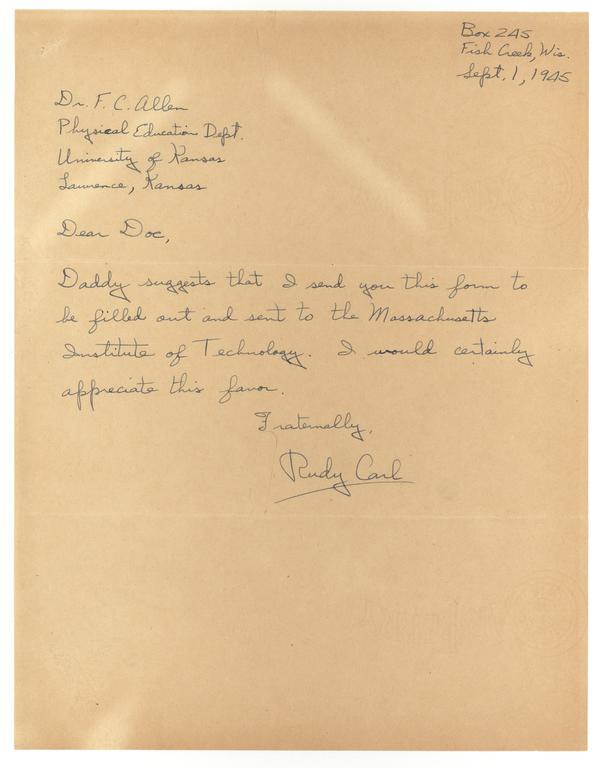 Box 245
Fish Creek, Wis.
Sept. 1, 1945
Dr. F. C. Allen
Physical Education Dept.
University of Kansas
Lawrence, Kansas
Dear Doc,
Daddy suggests that I send you this form to
be filled out and sent to the Massachusetts
Institute of Technology. I would certainly
appreciate this favor.
Fraternally,
Rudy Carl